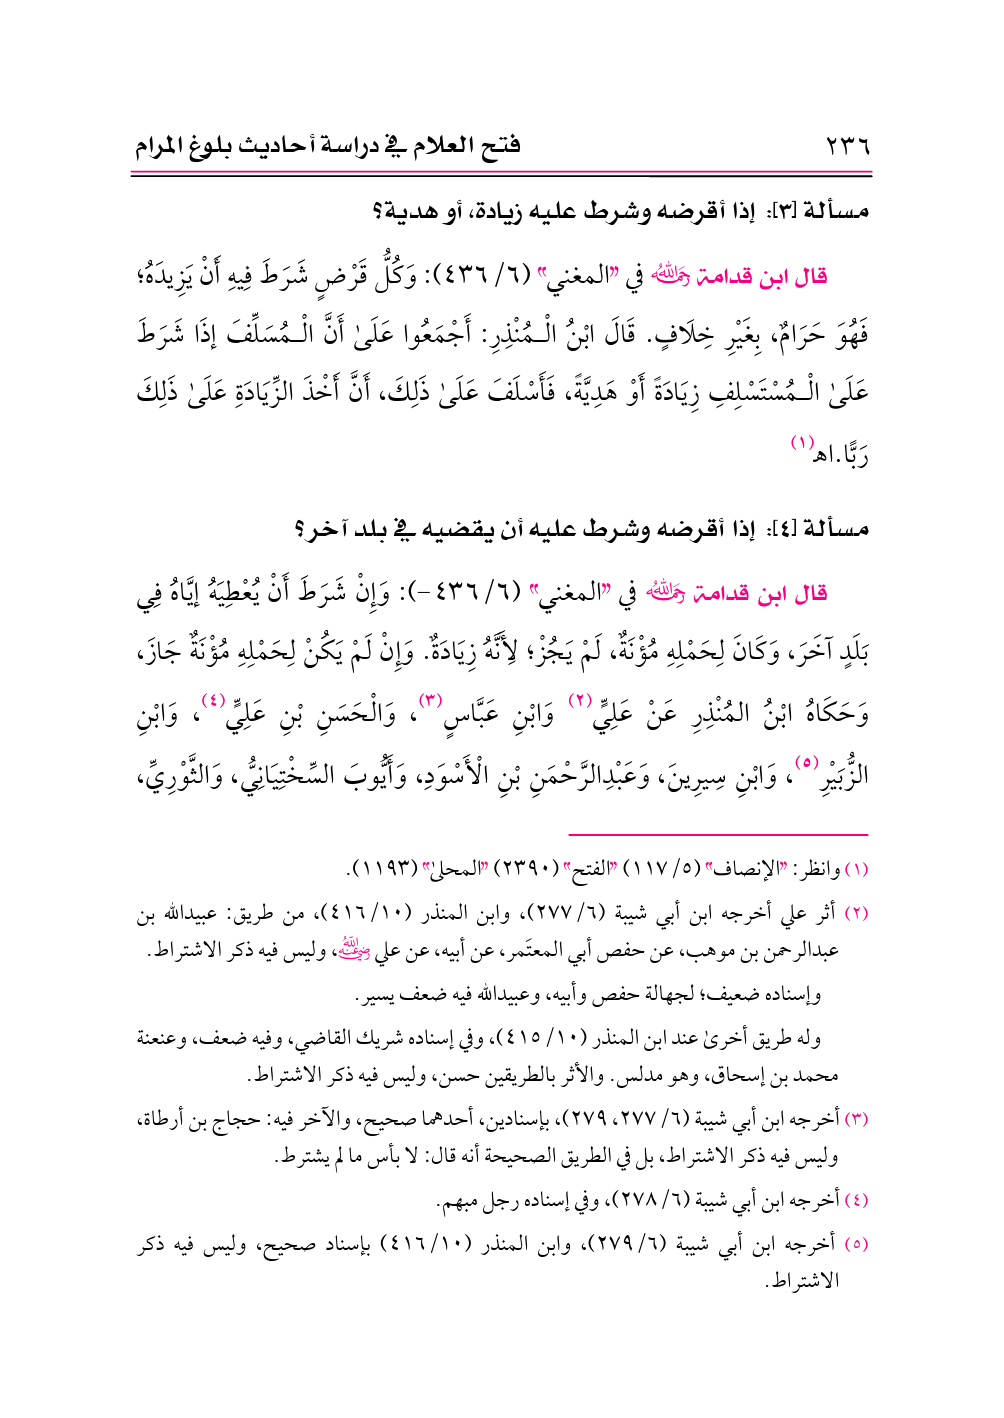 ٢٣٦ فتح العلام في دراسة أحاديث بلوغ المرام
مسألة [٣]: إذا أقرضه وشرط عليه زيادة، أو هدية؟
قال ابن قدامة رحمه الله في "المغني" (٦/ ٤٣٦): وَكُلُّ قَرْضٍ شَرَطَ فِيهِ أَنْ يَزِيدَهُ؛
فَهُوَ حَرَامٌ، بِغَيْرِ خِلَافٍ. قَالَ ابْنُ الْـمُنْذِرِ: أَجْمَعُوا عَلَىٰ أَنَّ الْـمُسَلِّفَ إِذَا شَرَطَ
عَلَىٰ الْـمُسْتَسْلِفِ زِيَادَةً أَوْ هَدِيَّةً، فَأَسْلَفَ عَلَىٰ ذَلِكَ، أَنَّ أَخْذَ الزِّيَادَةِ عَلَىٰ ذَلِكَ
رَبًّا.اهـ(١)
مسألة [٤]: إذا أقرضه وشرط عليه أن يقضيه في بلد آخر؟
قال ابن قدامة رحمه الله في "المغني" (٦/ ٤٣٦-): وَإِنْ شَرَطَ أَنْ يُعْطِيَهُ إِيَّاهُ فِي
بَلَدٍ آخَرَ، وَكَانَ لِحَمْلِهِ مُؤْنَةٌ، لَمْ يَجُزْ؛ لِأَنَّهُ زِيَادَةٌ. وَإِنْ لَمْ يَكُنْ لِحَمْلِهِ مُؤْنَةٌ جَازَ،
وَحَكَاهُ ابْنُ المُنْذِرِ عَنْ عَلِيٍّ(٢) وَابْنِ عَبَّاسٍ(٣)، وَالْحَسَنِ بْنِ عَلِيٍّ(٤)، وَابْنِ
الزُّبَيْرِ(٥)، وَابْنِ سِيرِينَ، وَعَبْدِالرَّحْمَنِ بْنِ الْأَسْوَدِ، وَأَيُّوبَ السِّخْتِيَانِيُّ، وَالثَّوْرِيِّ،
(١) وانظر: "الإنصاف" (٥/ ١١٧) "الفتح" (٢٣٩٠) "المحلىٰ" (١١٩٣).
(٢) أثر علي أخرجه ابن أبي شيبة (٦/ ٢٧٧)، وابن المنذر (١٠/ ٤١٦)، من طريق: عبيدالله بن
عبدالرحمن بن موهب، عن حفص أبي المعتَمر، عن أبيه، عن علي رضي الله عنه، وليس فيه ذكر الاشتراط.
وإسناده ضعيف؛ لجهالة حفص وأبيه، وعبيدالله فيه ضعف يسير.
وله طريق أخرىٰ عند ابن المنذر (١٠/ ٤١٥)، وفي إسناده شريك القاضي، وفيه ضعف، وعنعنة
محمد بن إسحاق، وهو مدلس. والأثر بالطريقين حسن، وليس فيه ذكر الاشتراط.
(٣) أخرجه ابن أبي شيبة (٦/ ٢٧٧، ٢٧٩)، بإسنادين، أحدهما صحيح، والآخر فيه: حجاج بن أرطاة،
وليس فيه ذكر الاشتراط، بل في الطريق الصحيحة أنه قال: لا بأس ما لم يشترط.
(٤) أخرجه ابن أبي شيبة (٦/ ٢٧٨)، وفي إسناده رجل مبهم.
(٥) أخرجه ابن أبي شيبة (٦/ ٢٧٩)، وابن المنذر (١٠/ ٤١٦) بإسناد صحيح، وليس فيه ذكر
الاشتراط.